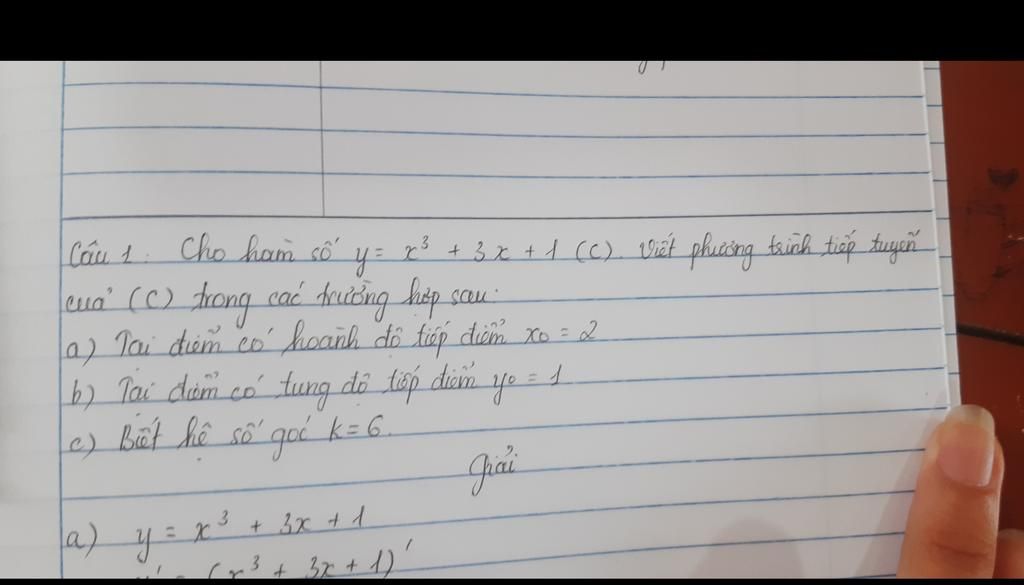 Câu 1. Cho hàm số y = x³ + 3x + 1 (C). Viết phương trình tiếp tuyến
của (C) trong các trường hợp sau:
a) Tại điểm có hoành độ tiếp điểm x₀ = 2
b) Tại điểm có tung độ tiếp điểm y₀ = 1
c) Biết hệ số góc k = 6.
Giải
a) y = x³ + 3x + 1
y' = (x³ + 3x + 1)'